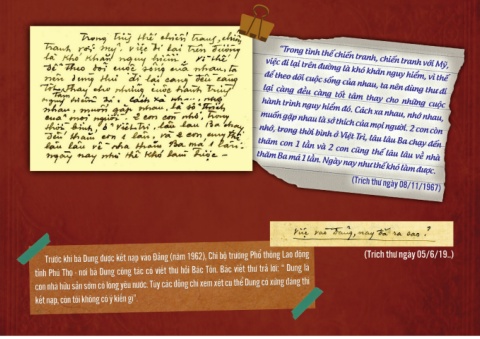 Trong tình thế chiến tranh, chiến
tranh với Mỹ, việc đi lại trên đường
là khó khăn nguy hiểm. Vì thế
để theo dõi cuộc sống của nhau, ta
nên dùng thư đi lại càng đều càng
tốt thay cho những cuộc hành trình
nguy hiểm đó. Cách xa nhau, nhớ
nhau, muốn gặp nhau là sở thích
của mọi người. 2 con còn nhỏ, trong
thời bình, ở Việt Trì, lâu lâu Ba chạy
đến thăm con 1 lần, và 2 con cũng thế
lâu lâu về nhà thăm Ba má 1 lần.
Ngày nay như thế khó làm được.
"Trong tình thế chiến tranh, chiến tranh với Mỹ,
việc đi lại trên đường là khó khăn nguy hiểm, vì thế
để theo dõi cuộc sống của nhau, ta nên dùng thư đi
lại càng đều càng tốt tăm thay cho những cuộc
hành trình nguy hiểm đó. Cách xa nhau, nhớ nhau,
muốn gặp nhau là sở thích của mọi người. 2 con còn
nhỏ, trong thời bình ở Việt Trì, lâu lâu Ba chạy đến
thăm con 1 lần và 2 con cũng thế lâu lâu về nhà
thăm Ba má 1 lần. Ngày nay như thế khó làm được.
(Trích thư ngày 08/11/1967)
Việc vào Đảng, nay đã ra sao?
(Trích thư ngày 05/6/19..)
Trước khi bà Dung được kết nạp vào Đảng (năm 1962), Chi bộ trường Phổ thông Lao động
tỉnh Phú Thọ - nơi bà Dung công tác có viết thư hỏi Bác Tôn. Bác viết thư trả lời: " Dung là
con nhà hữu sản sớm có lòng yêu nước. Tùy các đồng chí xem xét cụ thể Dung có xứng đáng thì
kết nạp, còn tôi không có ý kiến gì"